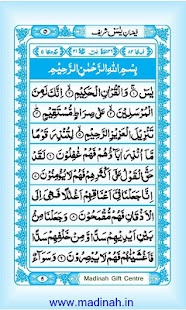 فیضانِ یٰسٓ شریف
بِسْمِ اللّٰهِ الرَّحْمٰنِ الرَّحِیْمِ
یٰسٓ ۚ وَالْقُرْاٰنِ الْحَكِیْمِ ۙ اِنَّكَ لَمِنَ
الْمُرْسَلِیْنَ ۙ عَلٰی صِرَاطٍ مُّسْتَقِیْمٍ ؕ
تَنْزِیْلَ الْعَزِیْزِ الرَّحِیْمِ ۙ لِتُنْذِرَ قَوْمًا
مَّاۤ اُنْذِرَ اٰبَآؤُهُمْ فَهُمْ غٰفِلُوْنَ لَقَدْ
حَقَّ الْقَوْلُ عَلٰۤی اَكْثَرِهِمْ فَهُمْ لَا یُؤْمِنُوْنَ
اِنَّا جَعَلْنَا فِیْۤ اَعْنَاقِهِمْ اَغْلٰلًا فَهِیَ اِلَی
الْاَذْقَانِ فَهُمْ مُّقْمَحُوْنَ وَجَعَلْنَا مِنْۢ
بَیْنِ اَیْدِیْهِمْ سَدًّا وَّمِنْ خَلْفِهِمْ سَدًّا
فَاَغْشَیْنٰهُمْ فَهُمْ لَا یُبْصِرُوْنَ وَسَوَآءٌ
Madinah Gift Centre
www.madinah.in